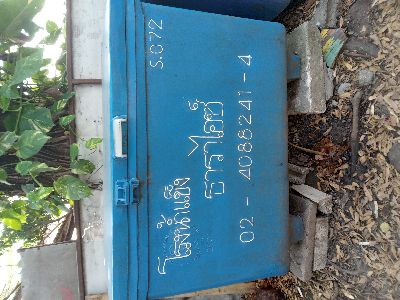 S.072
โรงน้ำแข็ง
ธาราไอซ์
02 - 4088241-4